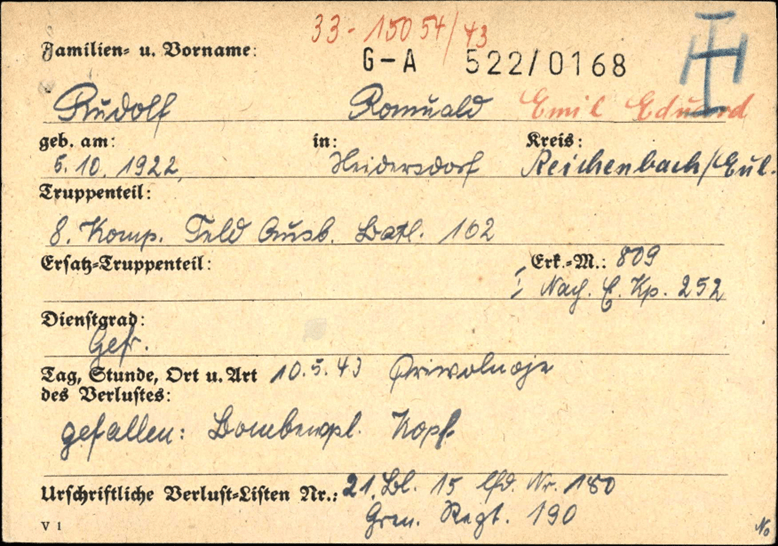 33-15054/43
Familien- u. Vorname: G-A 522/0168
Rudolf Romuald Emil Eduard
geb. am: in: Kreis:
5.10.1922, Heidersdorf Reichenbach/Eul.
Truppenteil:
8. Komp. Feld Ausb. Batl. 162
Ersatz-Truppenteil: Erk.-M.: 809
Nach. E. Kp. 252
Dienstgrad:
Gefr.
Tag, Stunde, Ort u. Art 10.5.43 Priwolnoje
des Verlustes:
gefallen: Bombenspl. Kopf
Urschriftliche Verlust-Listen Nr.: 21. Bl. 15 lfd. Nr. 180
Gren. Regt. 190
V 1 No